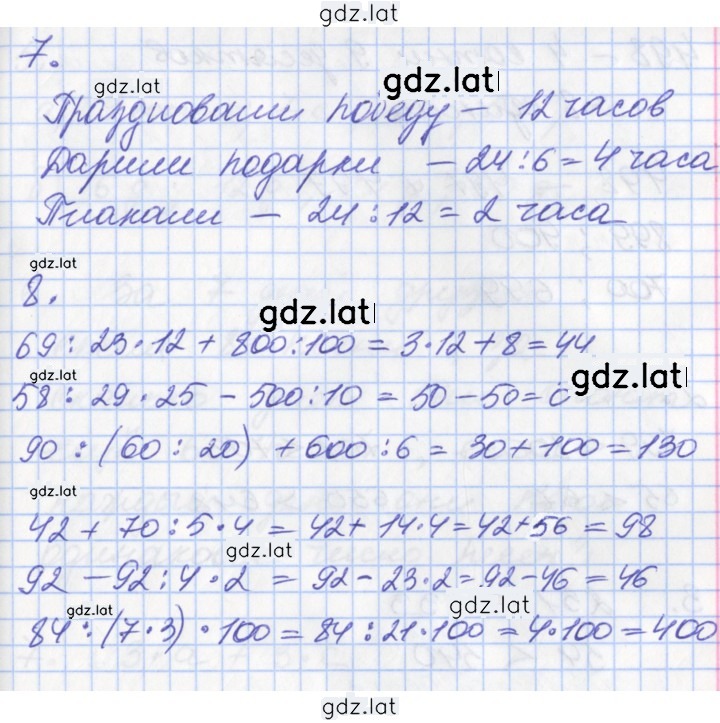 gdz.lat
7.
gdz.lat
gdz.lat
Праздновали победу — 12 часов
Дарили подарки — 24 : 6 = 4 часа
Плакали — 24 : 12 = 2 часа
gdz.lat
8.
gdz.lat
69 : 23 · 12 + 800 : 100 = 3 · 12 + 8 = 44
gdz.lat
gdz.lat
58 : 29 · 25 − 500 : 10 = 50 − 50 = 0
90 : (60 : 20) + 600 : 6 = 30 + 100 = 130
gdz.lat
42 + 70 : 5 · 4 = 42 + 14 · 4 = 42 + 56 = 98
gdz.lat
92 − 92 : 4 · 2 = 92 − 23 · 2 = 92 − 46 = 46
gdz.lat
gdz.lat
84 : (7 · 3) · 100 = 84 : 21 · 100 = 4 · 100 = 400
gdz.lat